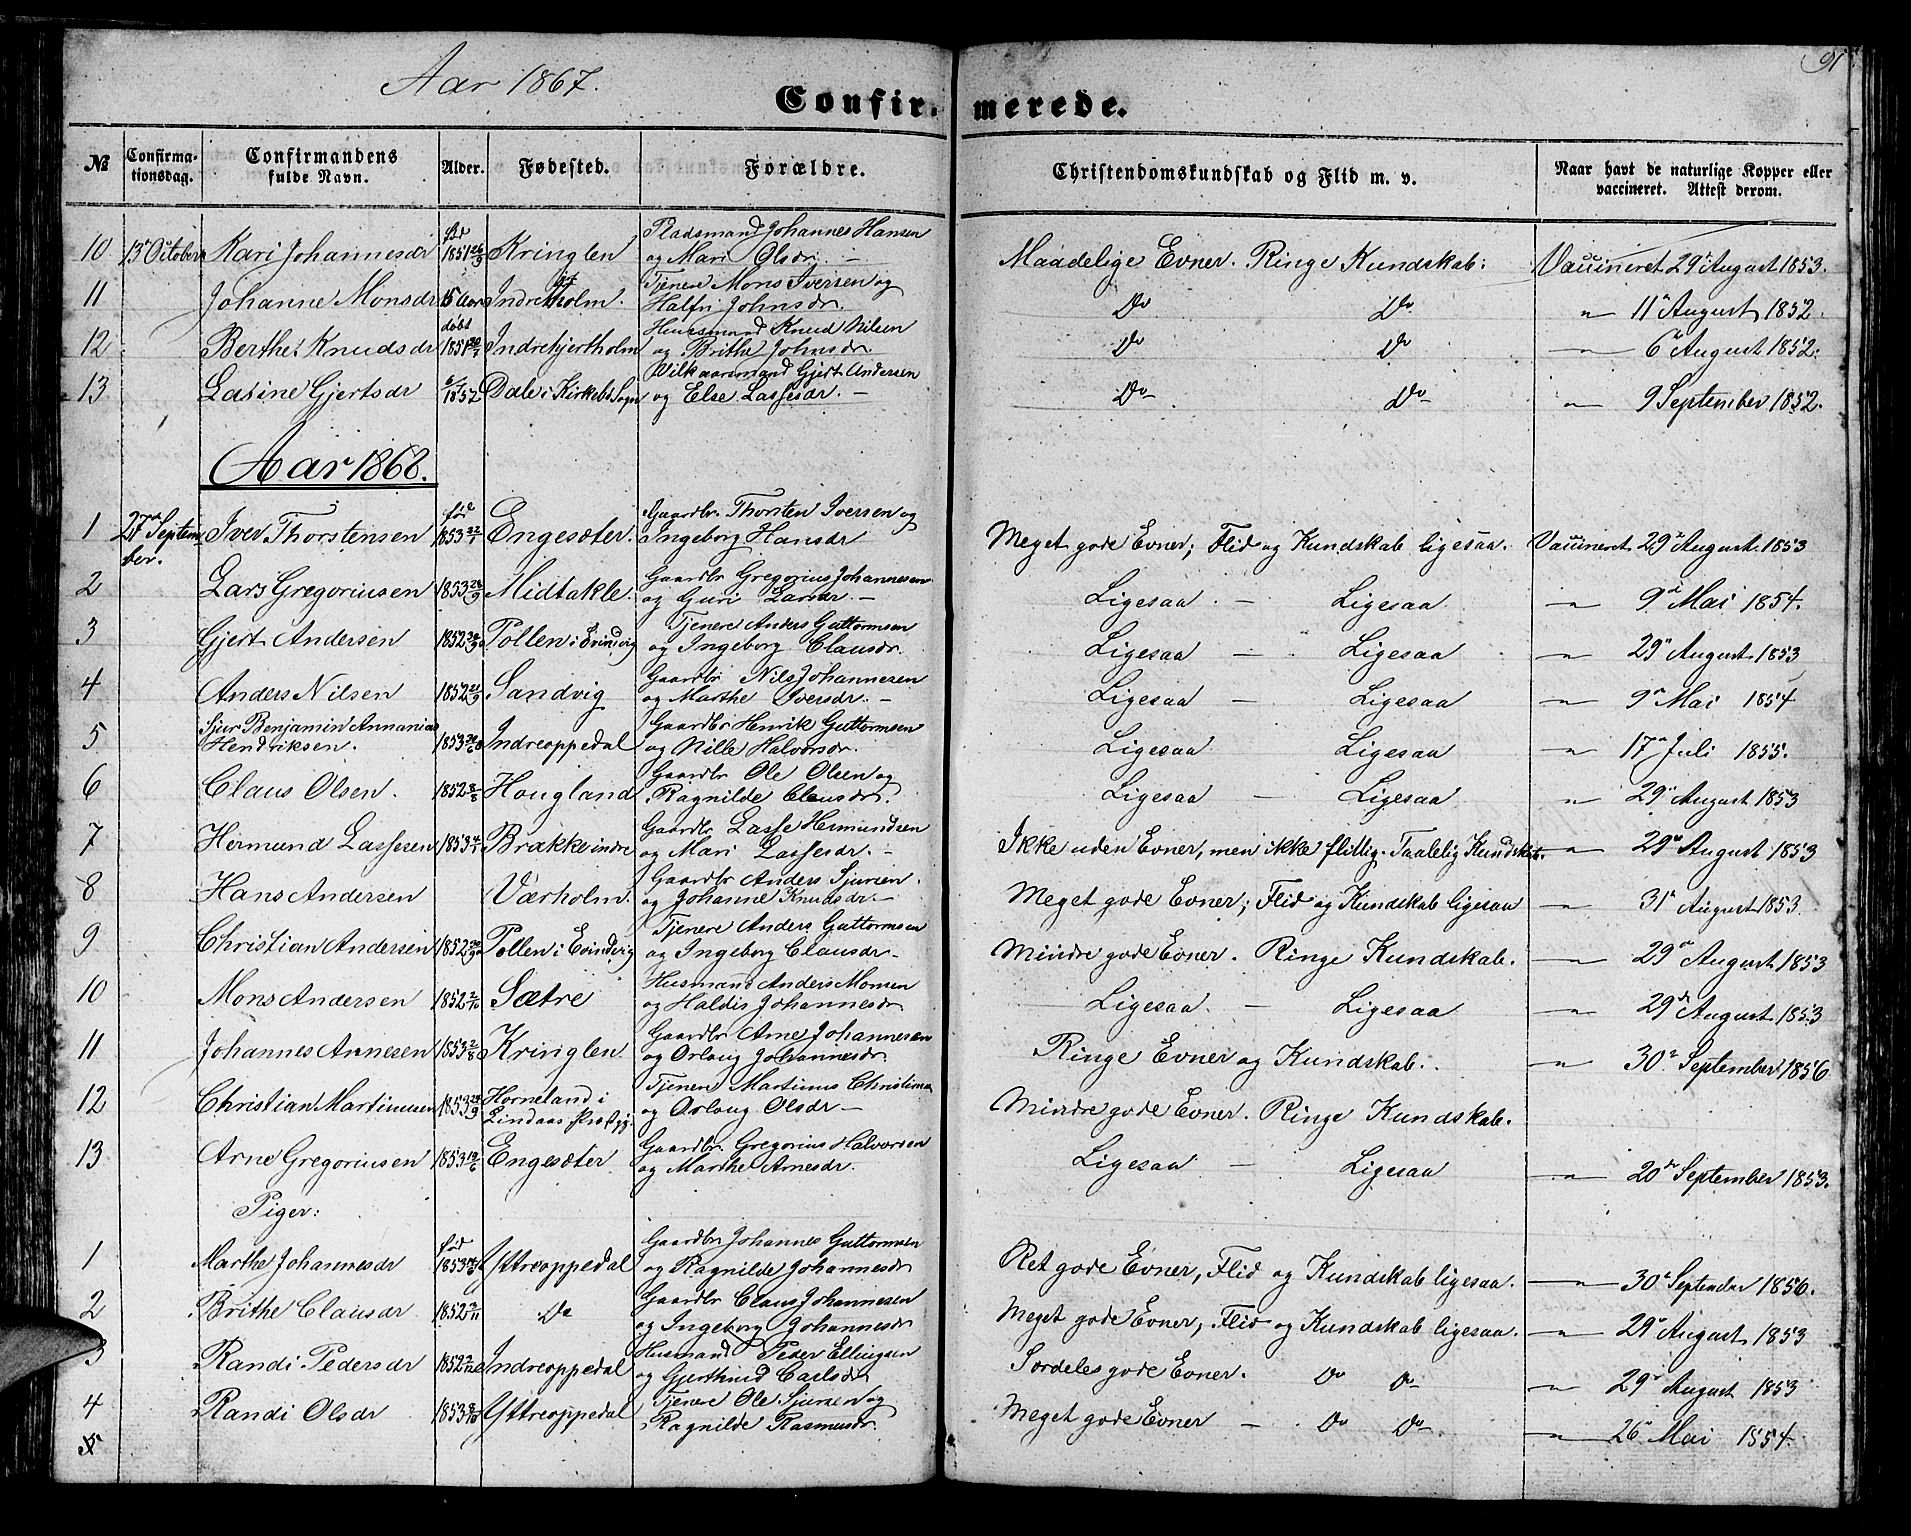 91
Aar 1867.
Confirmerede.
№ Confirmationsdag. Confirmandens fulde Navn. Alder. Fødested. Forældre. Christendomskundskab og Flid m. v. Naar havt de naturlige Kopper eller vaccineret. Attest derom.
10 13de October Kari Johannesdr fød 1851 26/9 Kringlen Pladsmand Johannes Hansen og Mari Olsdr. — Maadelige Evner. Ringe Kundskab. Vaccineret 29de August 1853.
11 Johanne Monsdr 15 Aar Indre Holm. Tjener Mons Iversen og Halfri Johnsdr. Do Do " 11te August 1852.
12 Berthe Knudsdr døbt 1851 Indrehjertholm Huusmand Knud Nilsen og Brithe Johnsdr. Do Do " 6te August 1852.
13 Lasine Gjertsdr 1852 Dale i Kirkebø Sogn Vilkaarsmand Gjert Andersen og Else Lassesdr. — Do Do " 9 September 1852.
Aar 1868.
1 27de September. Iver Thorstensen fød 1853 22/1 Engesæter. Gaardbr. Thorsten Iversen og Ingeborg Hansdr Meget gode Evner; Flid og Kundskab ligesaa. Vaccineret 29de August 1853
2 Lars Gregoriusen 1853 Midtakle. Gaardbr Gregorius Johannesen og Guri Larsdr. — Ligesaa. — Ligesaa " 9de Mai 1854.
3 Gjert Andersen 1852 Pollen i Evindvig Tjener Anders Guttormsen og Ingeborg Clausdr. Ligesaa — Ligesaa " 29de August 1853
4 Anders Nilsen 1852 Sandvig Gaardbr Nils Johannesen og Marthe Iversdr. — Ligesaa — Ligesaa " 9de Mai 1854
5 Sjur Benjamin Annanias Hendriksen. 1853 Indreoppedal Gaardbr Henrik Guttormsen og Nille Halvorsdr. Ligesaa Ligesaa " 17de Juli 1855.
6 Claus Olsen. 1852 8/8 Hougland Gaardbr Ole Olsen og Ragnilde Clausdr. Ligesaa — Ligesaa " 29de August 1853
7 Hermund Lassesen 1853 4/1 Brakke indre Gaardbr Lasse Hermundsen og Mari Lassesdr. — Ikke uden Evner, men ikke flittig. Taalelig Kundskab. " 29de August 1853
8 Hans Andersen Værholm. Gaardbr Anders Sjursen og Johanne Knudsdr. — Meget gode Evner; Flid og Kundskab ligesaa " 31te August 1853.
9 Christian Andersen 1852 Pollen i Evindvig Tjener Anders Guttormsen og Ingeborg Clausdr — Mindre gode Evner. Ringe Kundskab. " 29de August 1853
10 Mons Andersen 1852 2/10 Sætre Husmand Anders Monsen og Haldis Johannesdr Ligesaa. — Ligesaa " 29de August 1853
11 Johannes Arnesen 1853 2/8 Kringlen Gaardbr Arne Johannesen og Orlaug Johannesdr. Ringe Evner og Kundskab. " 30te September 1856
12 Christian Martinusen 1853 Horneland i Lindaas Præstgj. Tjener Martinus Christians og Orlaug Olsdr — Mindre gode Evner. Ringe Kundskab.
13 Arne Gregoriusen 1853 19/6 Engesæter Gaardbr. Gregorius Halvorsen og Marthe Arnesdr. Ligesaa — Ligesaa " 20de September 1853.
Piger:
1 Marthe Johannesdr fød 1853 Yttreoppedal Gaardbr Johannes Guttormsen og Ragnilde Johannesdr Ret gode Evner, Flid og Kundskab ligesaa. " 30te September 1856.
2 Brithe Clausdr 1852 2/11 Do Gaardbr Claus Johannesen og Ingeborg Johannesdr Meget gode Evner, Flid og Kundskab ligesaa. " 29de August 1853
3 Randi Pedersdr 1852 Indreoppedal Husmand Peder Ellingsen og Gjerthrud Carlsdr Særdeles gode Evner. Do Do " 29de August 1853
4 Randi Olsdr 1853 8/10 Yttreoppedal Tjener Ole Sjursen og Ragnilde Rasmusdr. Meget gode Evner — Do Do " 26te Mai 1854.
5